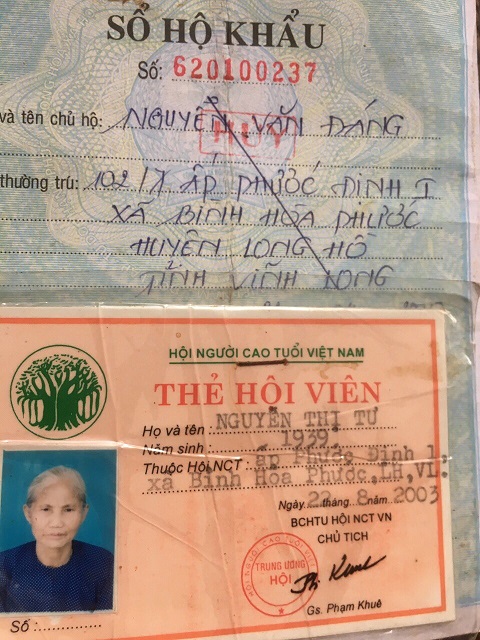 SỔ HỘ KHẨU
Số: 620100237
và tên chủ hộ: NGUYỄN VĂN ĐÁNG
HỦY
thường trú: 102/7 ẤP PHƯỚC ĐỊNH I
XÃ BÌNH HÒA PHƯỚC
HUYỆN LONG HỒ
TỈNH VĨNH LONG
HỘI NGƯỜI CAO TUỔI VIỆT NAM
THẺ HỘI VIÊN
Họ và tên : NGUYỄN THỊ TƯ
Năm sinh : 1939
Thuộc Hội NCT : ấp Phước Định 1;
xã Bình Hòa Phước,LH,VL.
Ngày 22 tháng 8 năm 2003
BCHTU HỘI NCT VN
CHỦ TỊCH
HỘI NGƯỜI CAO TUỔI VIỆT
TRUNG ƯƠNG
HỘI
Gs. Phạm Khuê
Số :